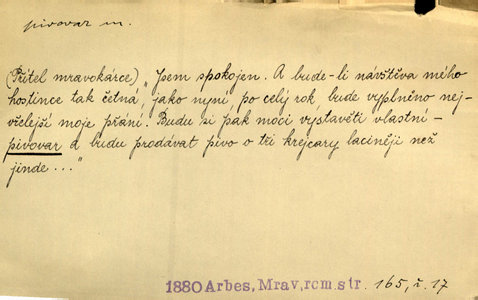 pivovar m.
(Přítel mravokárce) „Jsem spokojen. A bude-li návštěva mého
hostince tak četná, jako nyní, po celý rok, bude vyplněno nej-
vřelejší moje přání. Budu si pak moci vystavěti vlastní -
pivovar a budu prodávat pivo o tři krejcary laciněji než
jinde..."
1880 Arbes, Mrav, rom. str. 165, ř. 17